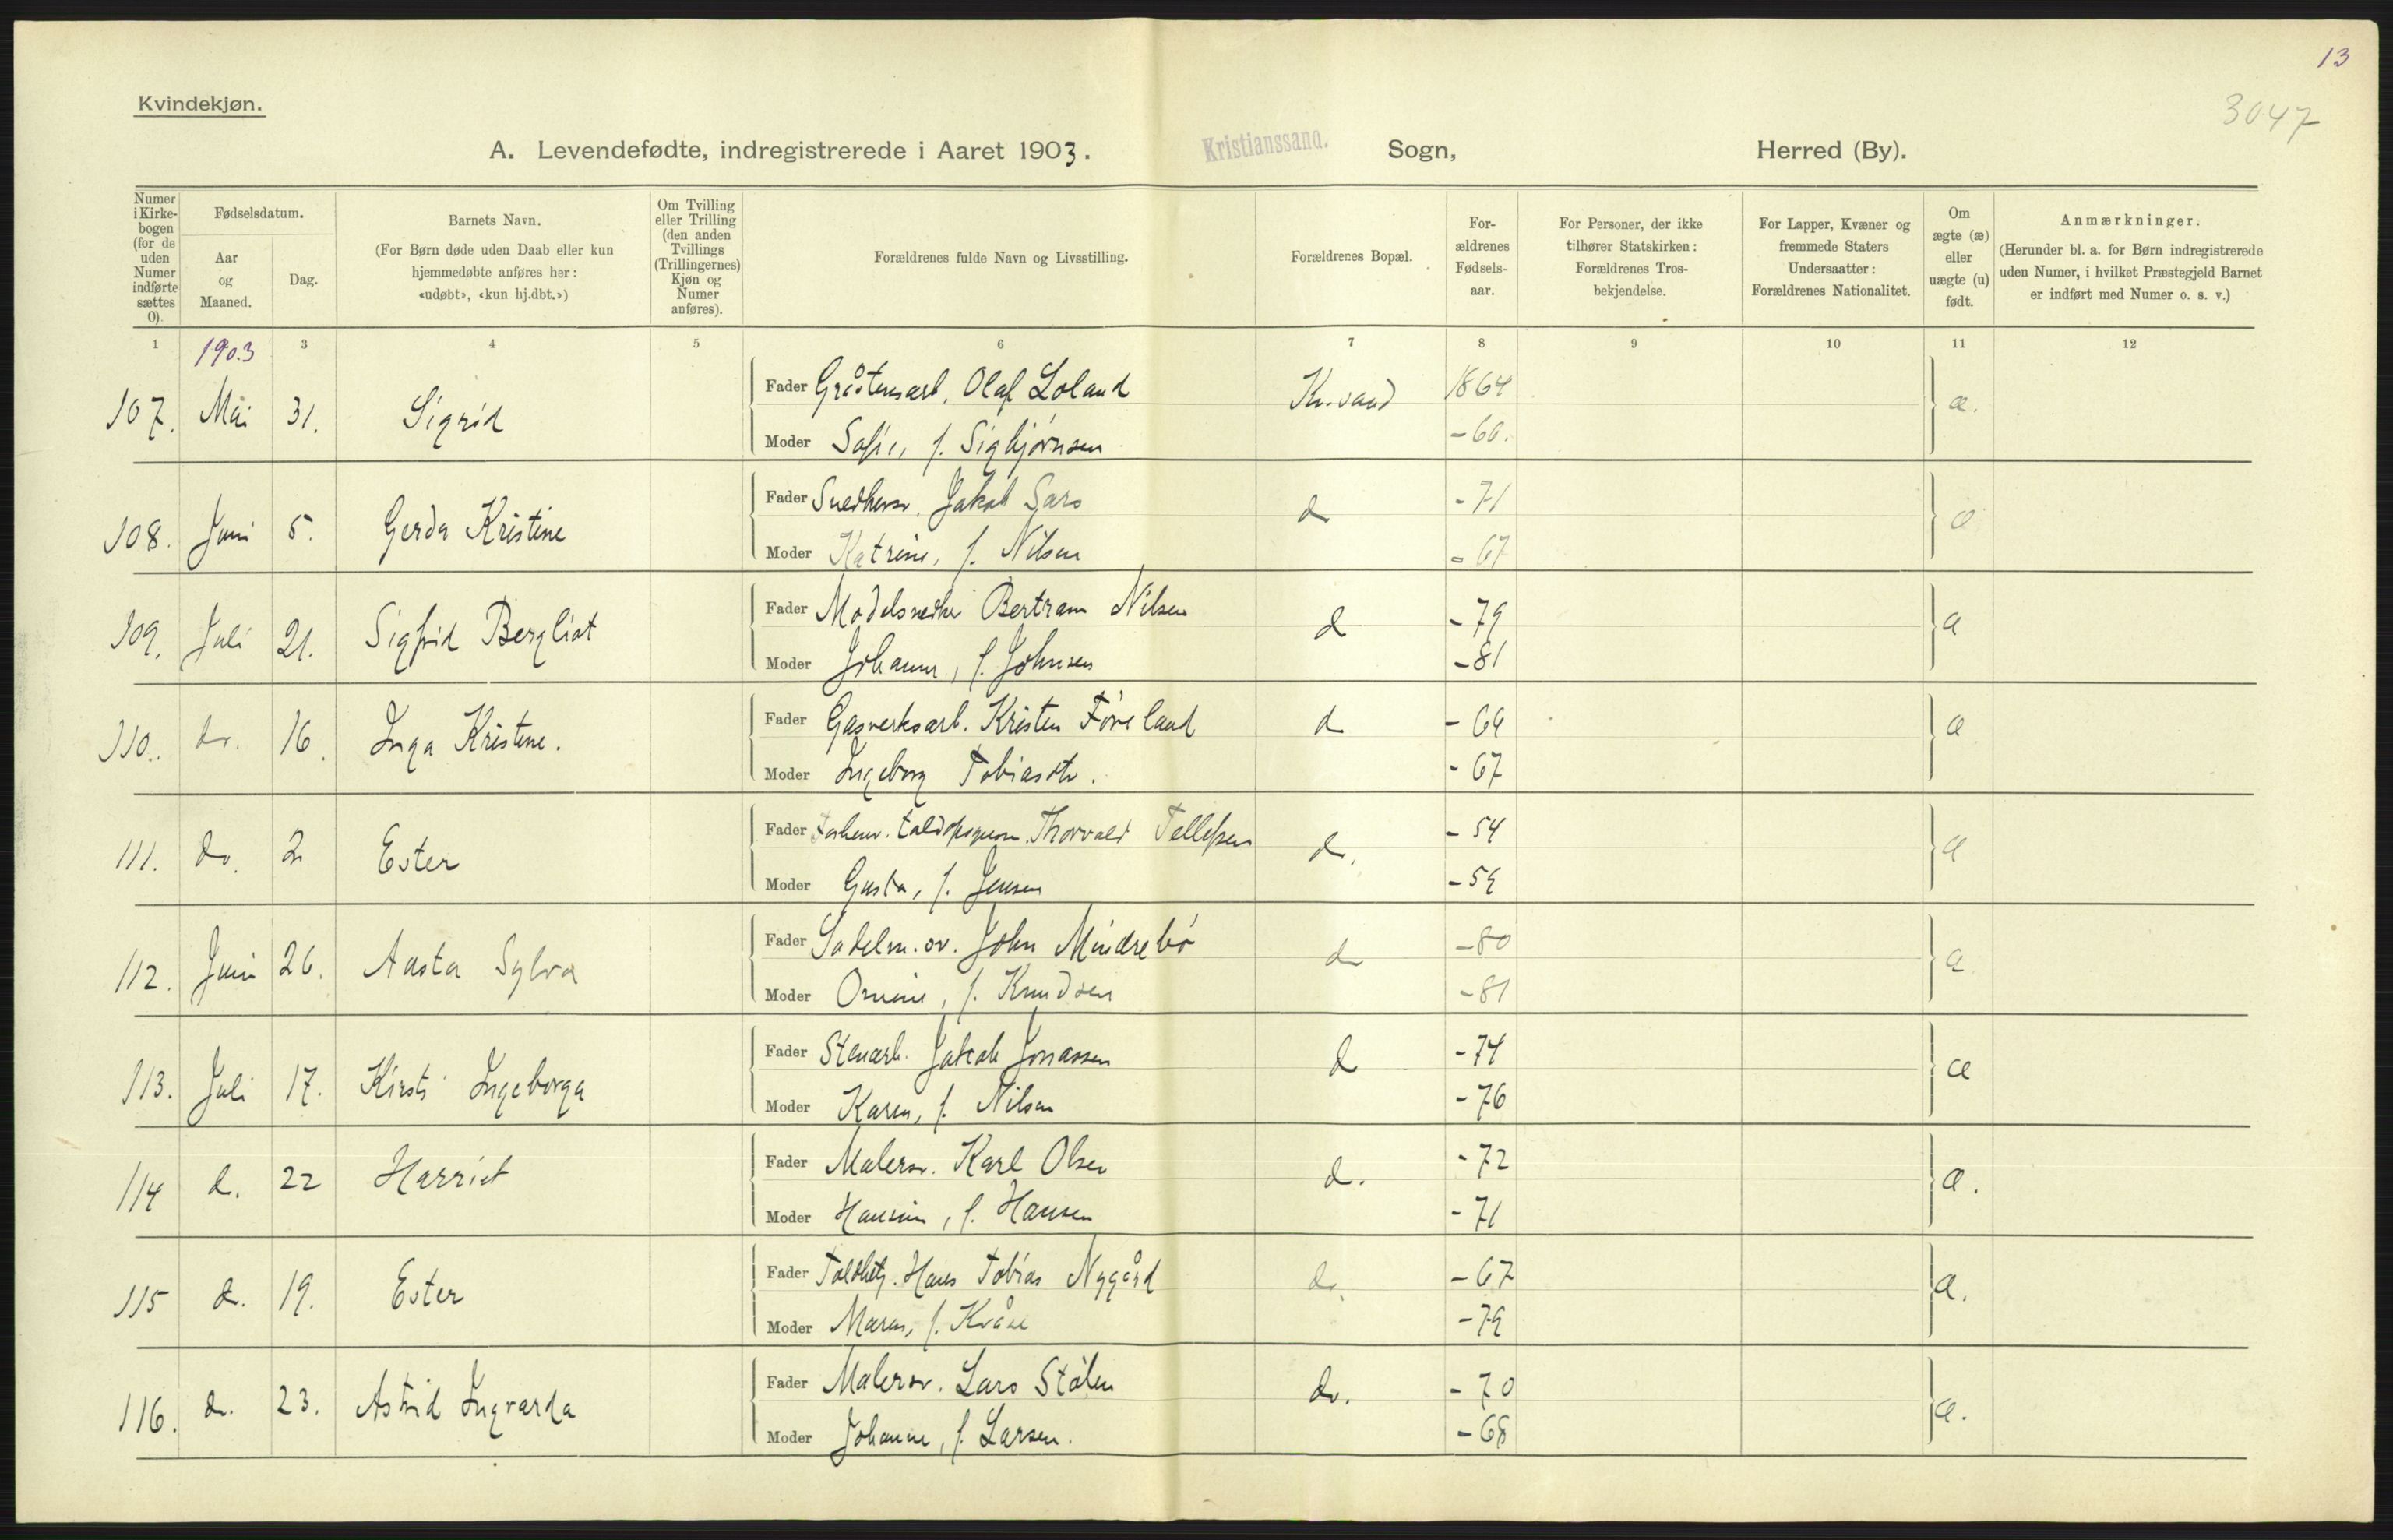 13
3047
Kvindekjøn.
A. Levendefødte, indregistrerede i Aaret 1903. Kristianssand. Sogn, Herred (By).
Numer i Kirkebogen (for de uden Numer indførte sættes 0).
Fødselsdatum.
Aar og Maaned.
Dag.
Barnets Navn.
(For Børn døde uden Daab eller kun hjemmedøbte anføres her: «udøbt», «kun hj.dbt.»)
Om Tvilling eller Trilling (den anden Tvillings (Trillingernes) Kjøn og Numer anføres).
Forældrenes fulde Navn og Livsstilling.
Forældrenes Bopæl.
Forældrenes Fødselsaar.
For Personer, der ikke tilhører Statskirken: Forældrenes Trosbekjendelse.
For Lapper, Kvæner og fremmede Staters Undersaatter: Forældrenes Nationalitet.
Om ægte (æ) eller uægte (u) født.
Anmærkninger.
(Herunder bl. a. for Børn indregistrerede uden Numer, i hvilket Præstegjeld Barnet er indført med Numer o. s. v.)
1 3 4 5 6 7 8 9 10 11 12
1903
107. Mai 31. Sigrid Fader Gråstensarb. Olaf Loland Kr.sand 1864 æ.
Moder Sofie, f. Sigbjørnsen -60.
108. Juni 5. Gerda Kristine Fader Snedkersv. Jakob Sars d -71 æ
Moder Katrine, f. Nilsen -67
109. Juli 21. Sigfrid Bergliot Fader Modelsnedker Bertram Nilsen d -79 æ
Moder Johanne, f. Johnsen -81
110. do. 16. Inga Kristine. Fader Gasverksarb. Kristen Føreland d -69 æ
Moder Ingeborg Tobiasdtr. -67
111. do. 2 Ester Fader Thorvald Tellefsen d. -54 æ
Moder Gusta, f. Jensen -59
112. Juni 26. Aasta Sylva Fader Sadelm.sv. John Mindrebø d -80 æ
Moder f. Knudsen -81
113. Juli 17. Kirsti Ingeborga Fader Stenarb. Jakob Jonassen d -74 æ
Moder Karen, f. Nilsen -76
114 d. 22 Harriet Fader Malersv. Karl Olsen d. -72 æ.
Moder Hansine, f. Hansen -71
115 d. 19. Ester Fader Toldbetj. Hans Tobias Nygård do. -67 æ.
Moder Maren, f. Kvåse -79
116. do. 23. Astrid Ingvarda Fader Malersv. Lars Stølen do. -70 æ.
Moder Johanne, f. Larsen. -68